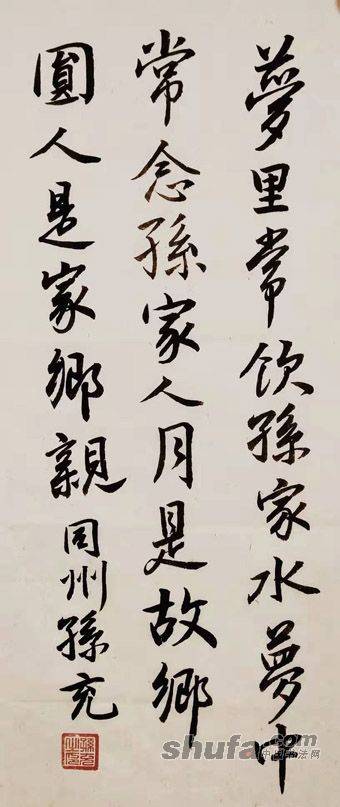 夢里常飲孫家水夢中
常念孫家人月是故鄉
圓人是家鄉親
同州孫充
shufa.com
中国书法网